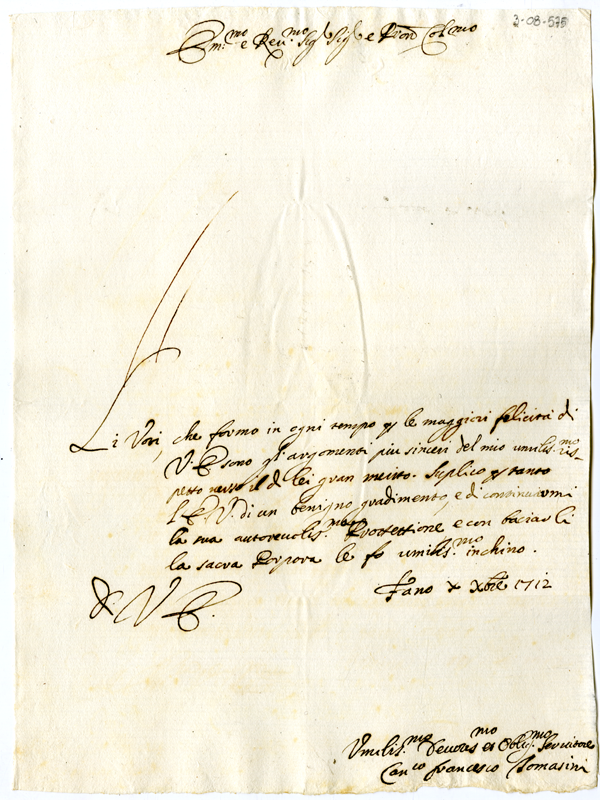 3-08-575
Em.mo e Rev.mo Sig.r Sig.r e Pron Col.mo
Li Voti, che formo in ogni tempo p le maggiori felicità di
V. E. sono gl'argomenti piu sinceri del mio umilis.mo ris-
petto verso il di lei gran merito. Suplico p tanto
l'E. V. di un benigno gradimento, e di continuarmi
la sua autorevolis.ma Protettione e con baciarli
la sacra Porpora le fo umilis.mo inchino.
Fano Xbre 1712
D. V. E.
Vmilis.mo Devotis.mo et Oblig.mo Servitore
Can.co Francesco Tomasini